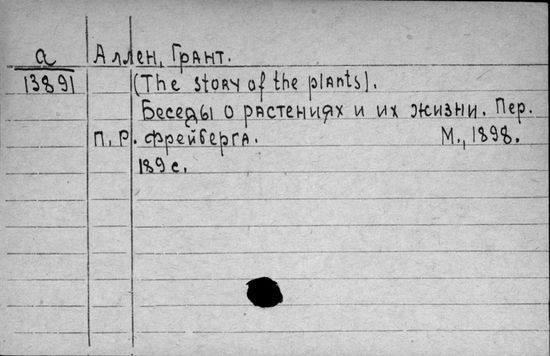 а Аллен, Грант.
13891 (The story of the plants).
Беседы о растениях и их жизни. Пер.
п. р. Фрейберга. М., 1898.
189 с.